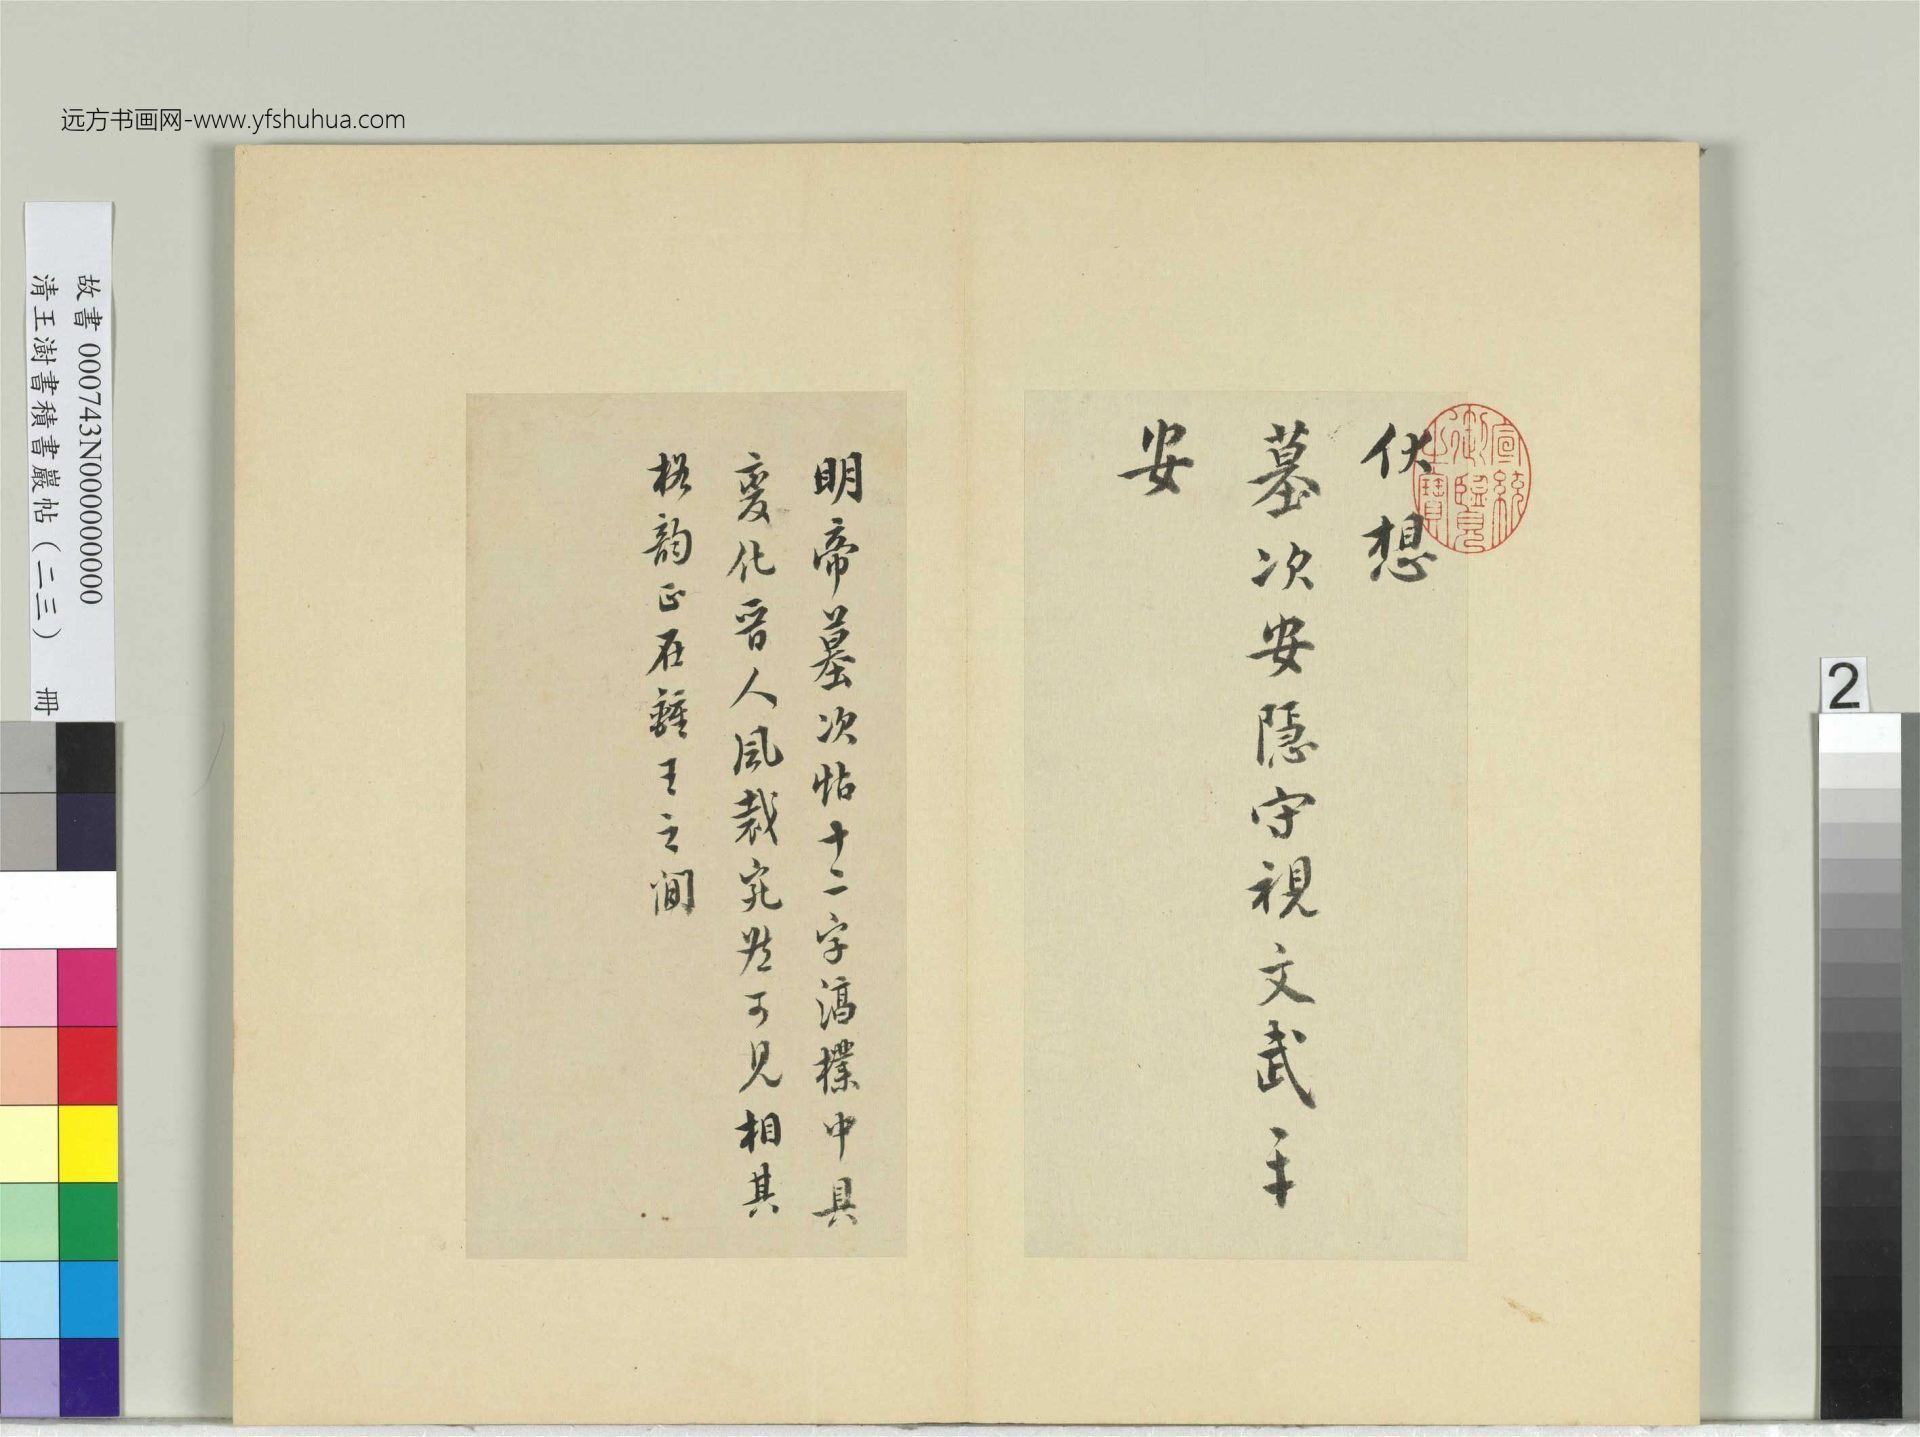 远方书画网-www.yfshuhua.com
故書 000743N000000000
清王澍書積書巖帖（二三） 冊
2
宣統御覽之寶
伏想
墓次安隱守視文武平
安
明帝墓次帖十二字淳樸中具
變化晉人風裁究然可見相其
格韵正在鍾王之間